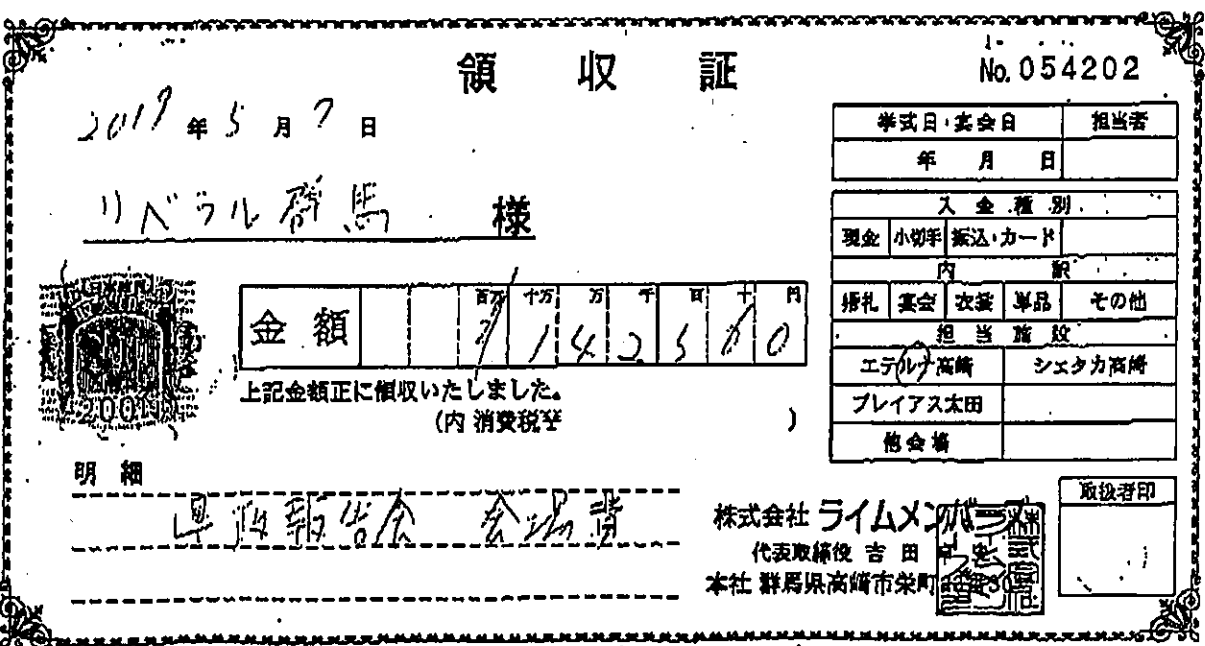 領収証
No. 054202
2019年5月7日
リベラル群馬 様
挙式日・宴会日 担当者
年 月 日
入金種別
現金 小切手 振込・カード
内訳
婚礼 宴会 衣裳 単品 その他
担当施設
エテルナ高崎 シェタカ高崎
プレイアス太田
他会場
金額
百万 十万 万 千 百 十 円
142500
上記金額正に領収いたしました。
(内 消費税等 )
200
明細
県政報告会 会場費
取扱者印
株式会社 ライムメン
代表取締役 吉田
本社 群馬県高崎市栄町